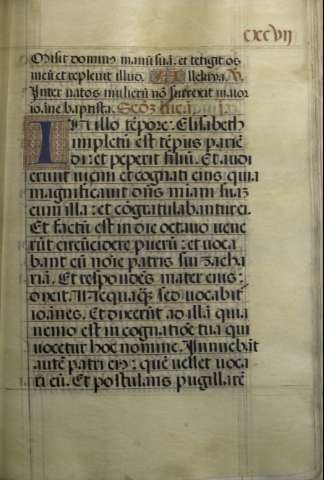 cxcvij
Misit dominꝰ manū suā. et tetigit os
meū et repleuit illud. Alleluya. V.
Inter natos mulierū nō surrexit maior
ioāne baptista. Scd̄z lucā.
In illo tēpore: Elisabeth
impletū est tēpus pariē
di: et peperit filiū. Et audi
erunt vicini et cognati eius quia
magnificauit dn̄s miam̄ suaz
cum illa: et cōgratulabantur ei.
Et factū est in die octauo vene
rūt circūcidere puerū: et voca
bant eū nōie patris sui zacha
riā. Et respondēs mater eius:
dixit. Nequaq̄z sed vocabit̄
ioānes. Et dixerūt ad illā quia
nemo est in cognatiōe tua qui
vocetur hoc nomine. Innuebāt
autē patri eiꝰ: quē vellet voca
ri eū. Et postulans pugillarē